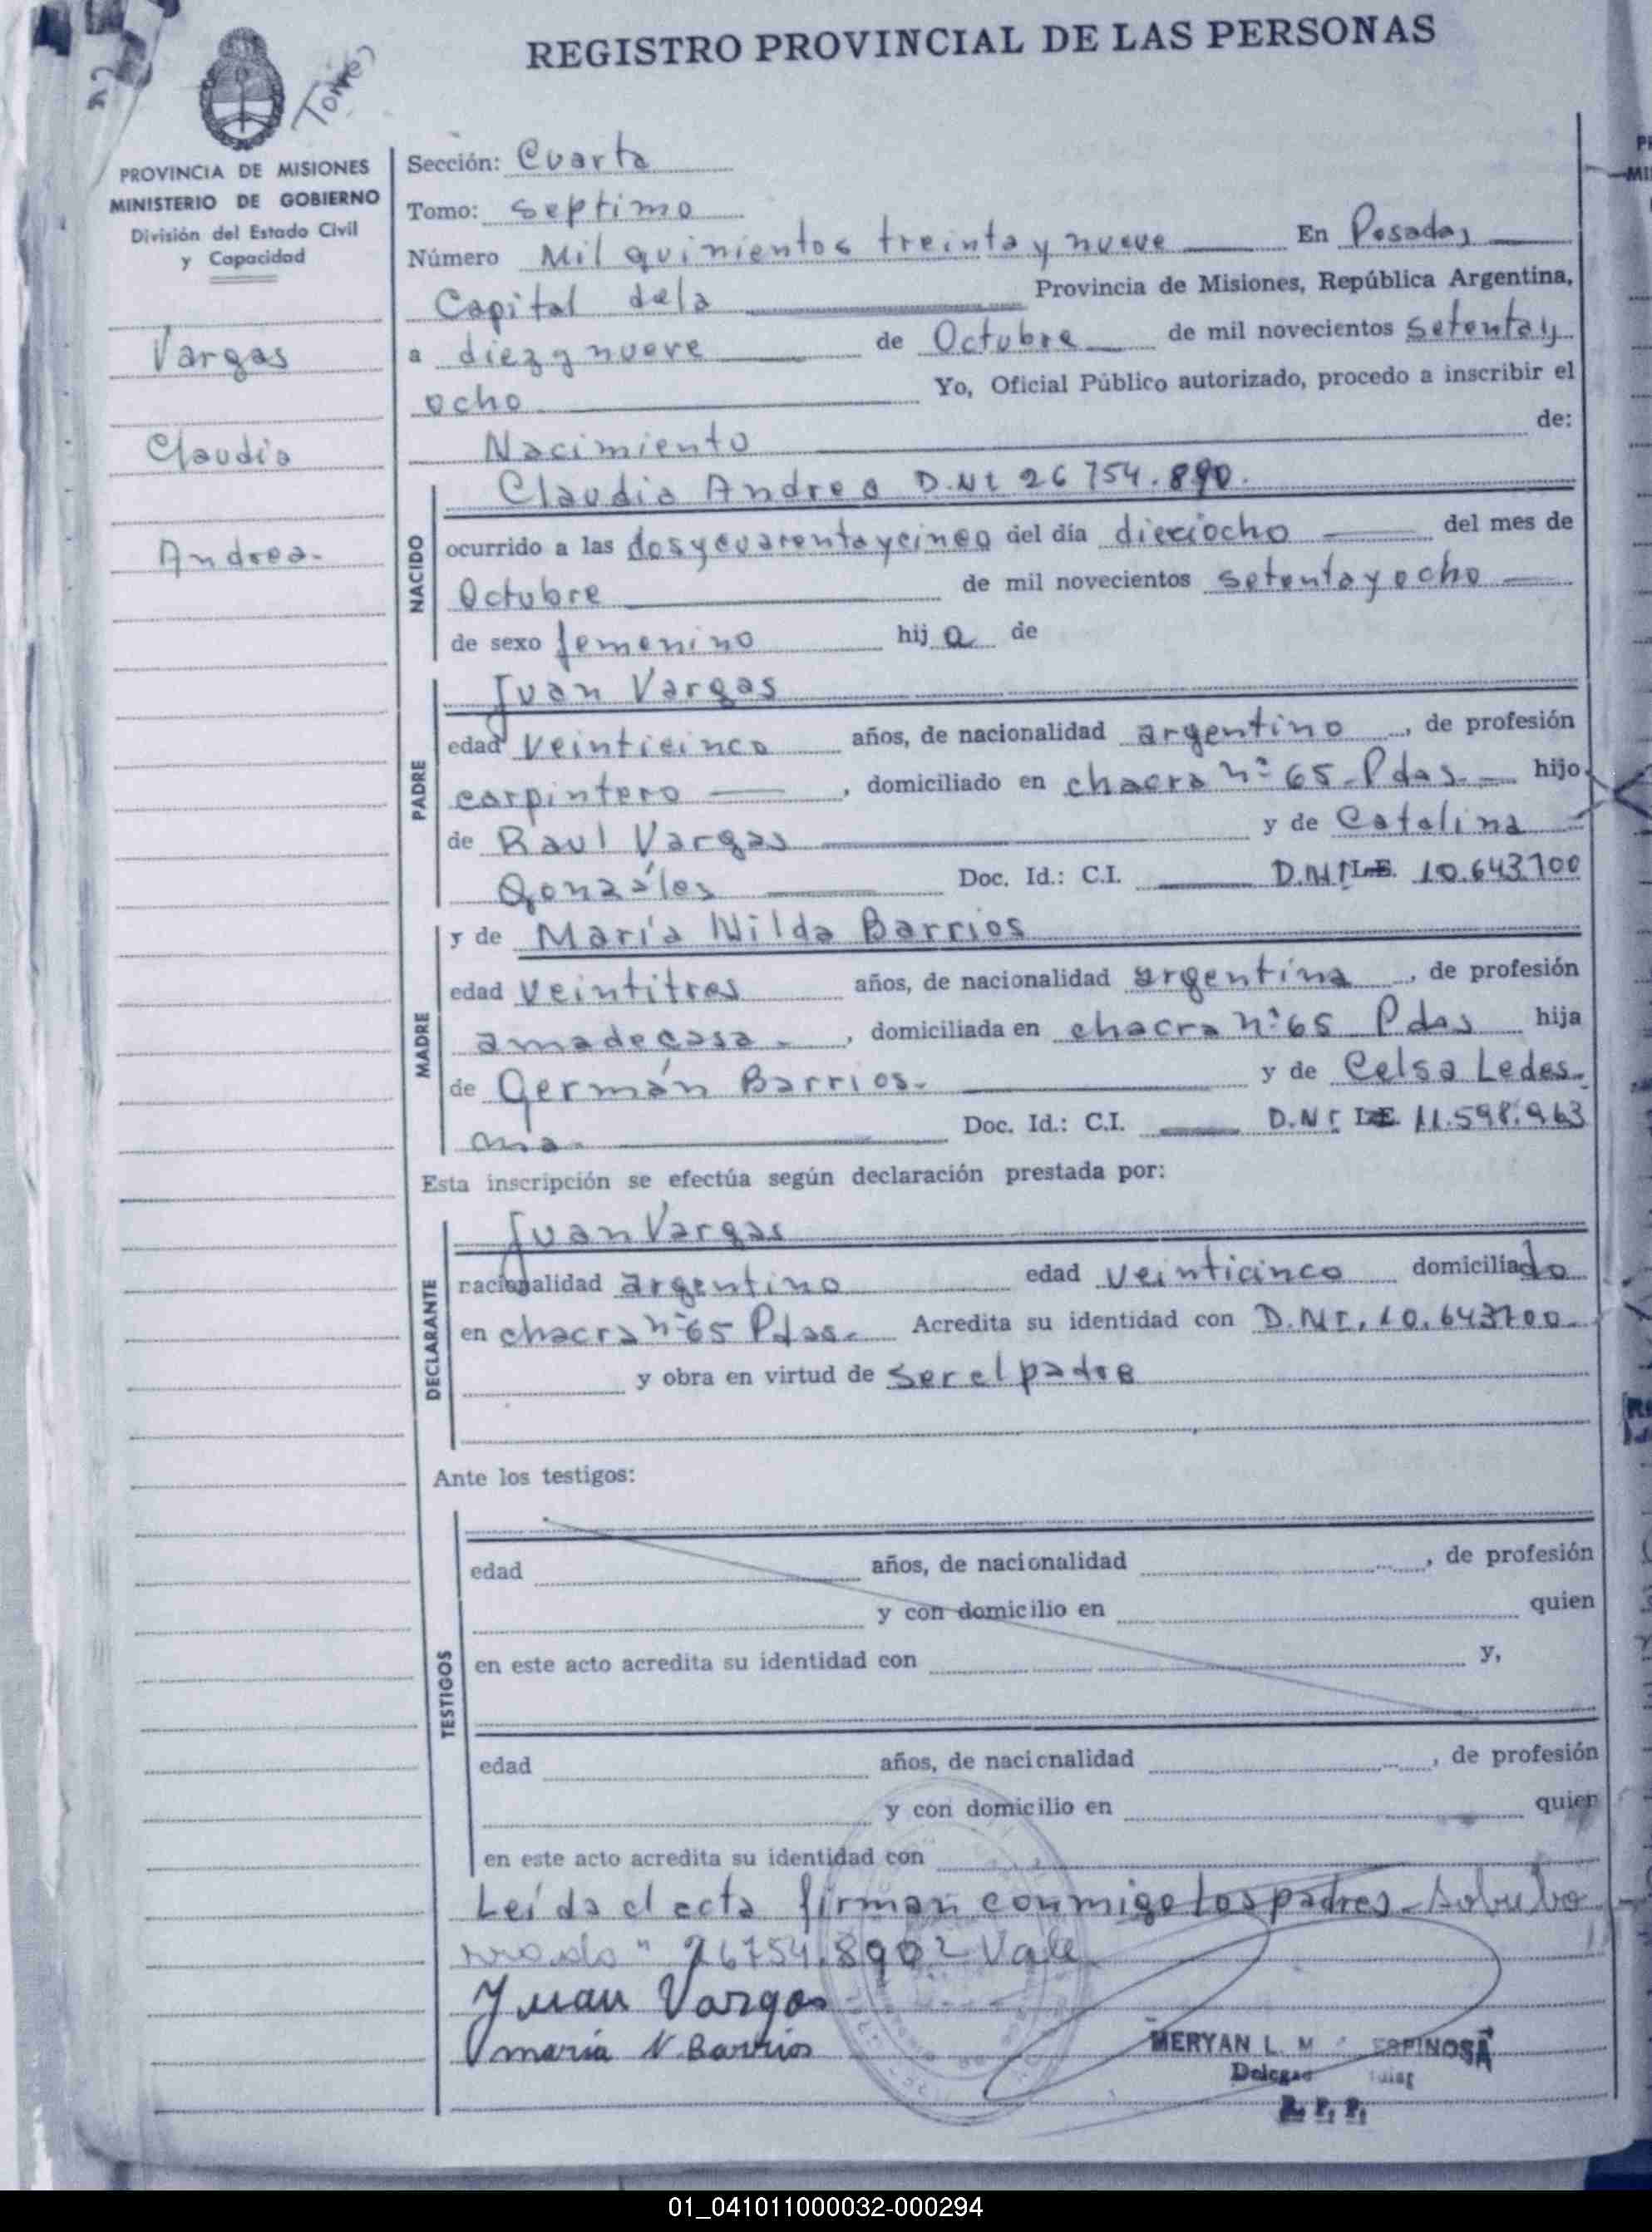 REGISTRO PROVINCIAL DE LAS PERSONAS
Torres
PROVINCIA DE MISIONES
MINISTERIO DE GOBIERNO
División del Estado Civil
y Capacidad
Vargas
Claudia
Andrea-
Sección: Cuarta
Tomo: septimo
Número Mil quinientos treinta y nueve En Posadas
Capital dela Provincia de Misiones, República Argentina,
a diez y nueve de Octubre de mil novecientos setenta y
ocho Yo, Oficial Público autorizado, procedo a inscribir el
Nacimiento de:
NACIDO
Claudia Andrea D.NI 26 754.890.
ocurrido a las dos y cuarenta y cinco del día dieciocho del mes de
Octubre de mil novecientos setenta y ocho
de sexo femenino hija de
PADRE
Juan Vargas
edad veinticinco años, de nacionalidad argentino, de profesión
carpintero, domiciliado en chacra nº 65 - Pdas. hijo
de Raul Vargas y de Catalina
Gonzáles Doc. Id.: C.I. D.N.I L.E. 10.643.700
MADRE
y de María Nilda Barrios
edad veintitres años, de nacionalidad argentina, de profesión
ama de casa -, domiciliada en chacra nº 65 Pdas hija
de Germán Barrios. y de Celsa Ledes-
ma- Doc. Id.: C.I. D.N.I. L.E. 11.598.963
Esta inscripción se efectúa según declaración prestada por:
DECLARANTE
Juan Vargas
nacionalidad argentino edad veinticinco domiciliado
en chacra nº 65 Pdas. Acredita su identidad con D.N.I. 10.643700.
y obra en virtud de ser el padre
Ante los testigos:
TESTIGOS
edad años, de nacionalidad , de profesión
y con domicilio en quien
en este acto acredita su identidad con y,
edad años, de nacionalidad , de profesión
y con domicilio en quien
en este acto acredita su identidad con
Leída el acta firman conmigo los padres - Sobrebo
rrado " 26754.890" Vale
Juan Vargas
maria N. Barrios
MERYAN L. M ESPINOSA
R. P. P.
01_041011000032-000294